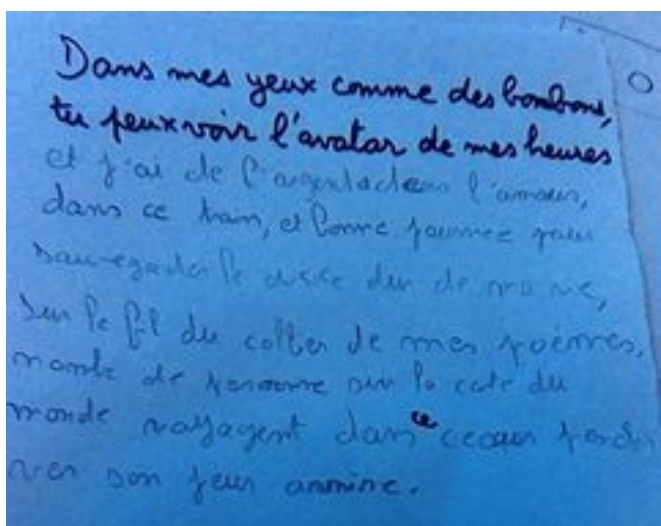 Dans mes yeux comme des bonbons,
tu peux voir l'avatar de mes heures
et j'ai de l'argent dans l'amour,
dans ce train, et bonne journée pour
sauvegarder le disque dur de ma vie,
sur le fil du collier de mes poèmes,
monde de personne sur la carte du
monde dans ce
vers son